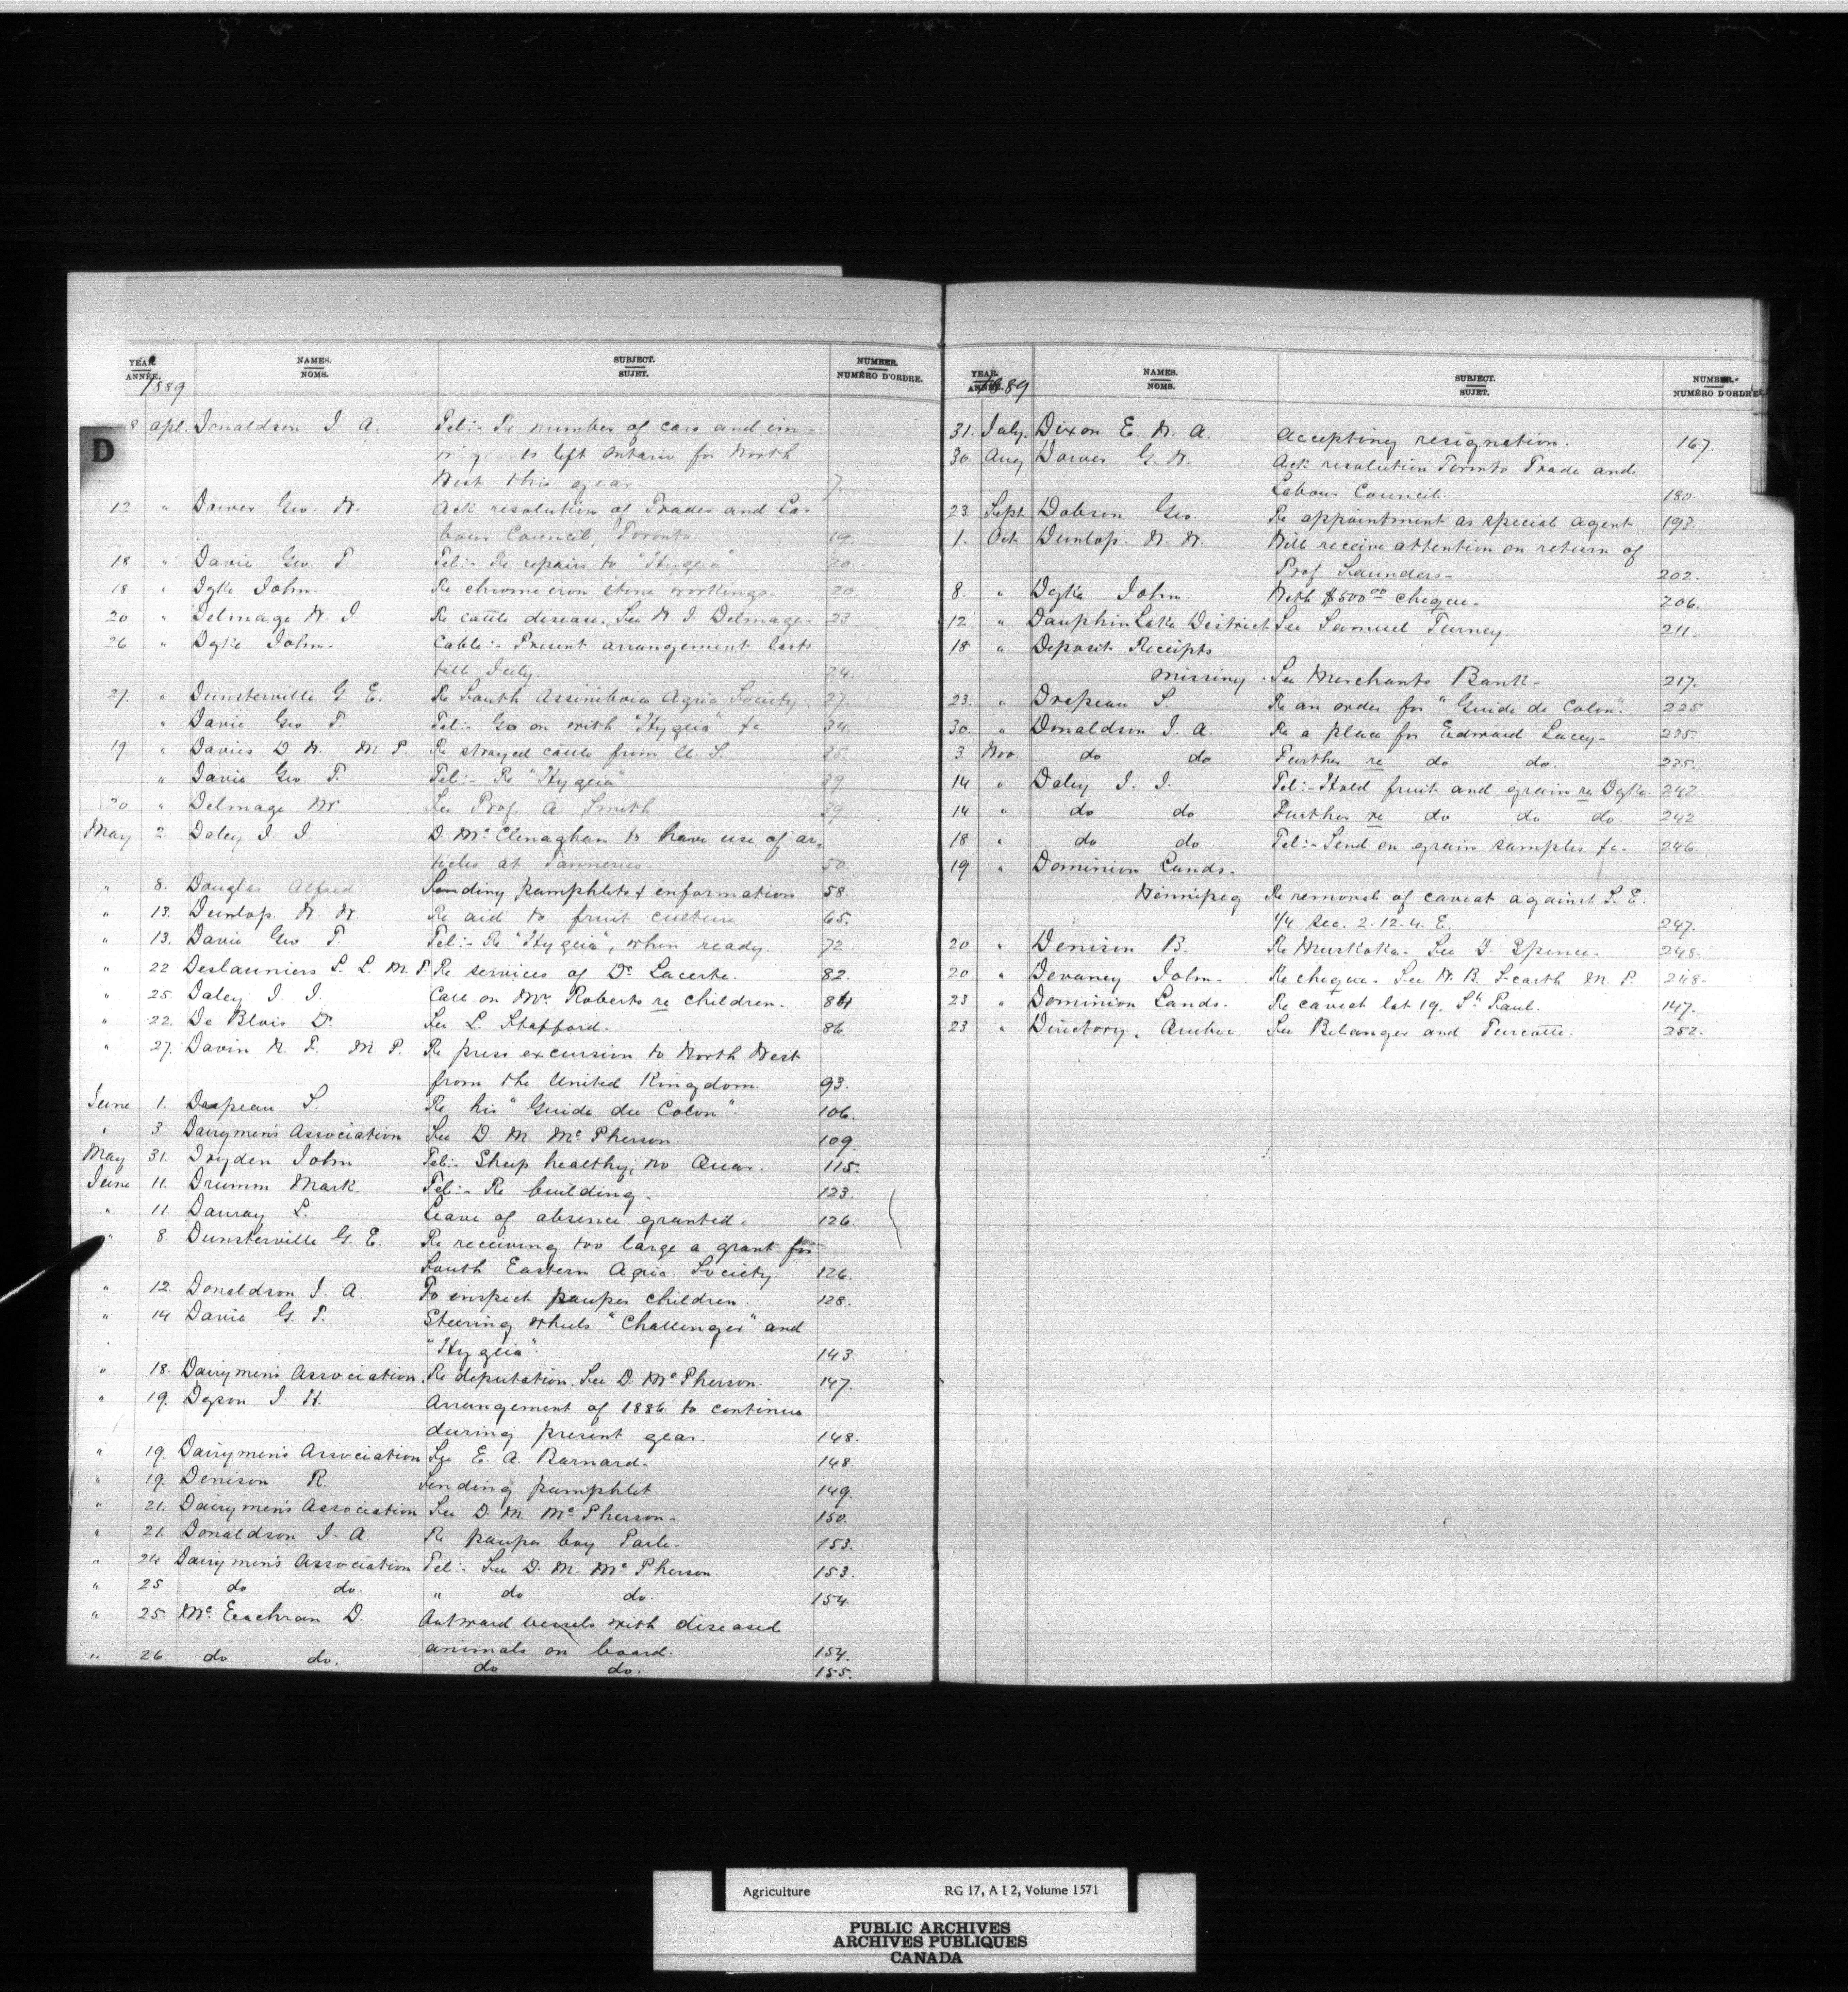 YEAR. ANNÉE. NAMES. NOMS. SUBJECT. SUJET. NUMBER. NUMÉRO D'ORDRE.
1889
D
8 Apl. Donaldson J. A. Tel:- Re number of cars and im-
migrants left Ontario for North
West this year. 7.
12 " Dower Geo. W. Ack resolution of Trades and La-
bour Council, Toronto. 19.
18 " Davie Geo. T. Tel:- Re repairs to "Hygeia" 20.
18 " Dyke John. Re chrome iron stone workings. 20.
20 " Delmage W. J. Re cattle disease. See W. J. Delmage. 23
26 " Dyke John. Cable:- Present arrangement lasts
till July. 24.
27. " Dunsterville G. E. Re South Assiniboia Agric Society. 27.
" Davie Geo T. Tel:- Go on with "Hygeia" &c 34.
19 " Davies D. W. M. P. Re strayed cattle from U. S. 35.
" Davie Geo. T. Tel:- Re "Hygeia" 39
20 " Delmage W. See Prof. A. Smith 39
May 2. Daley J. J. D. McClenaghan to have use of ar-
ticles at Tanneries. 50.
" 8. Douglas Alfred. Sending pamphlets & information 58.
" 13. Dunlop W. W. Re aid to fruit culture 65.
" 13. Davie Geo T. Tel:- Re "Hygeia", when ready. 72.
" 22 Deslauniers L. L. M. P. Re services of Dr Lacerte. 82.
" 25. Daley J. J. Call on Mr. Roberts re children. 84
" 22. De Blois D. See L. Stafford. 86.
" 27. Davin N. F. M. P. Re press excursion to North West
from the United Kingdom. 93.
June 1. Drapeau S. Re his "Guide du Colon". 106.
" 3. Dairymen's Association See D. M. McPherson. 109.
May 31. Dryden John Tel:- Sheep healthy; no Quar. 115.
June 11. Drumm Mark. Tel:- Re building. 123.
" 11. Dauray L. Leave of absence granted. 126.
" 8. Dunsterville G. E. Re receiving too large a grant for
South Eastern Agric. Society. 126.
" 12. Donaldson J. A. To inspect pauper children. 128.
" 14 Davie G. T. Steering wheels "Challenger" and
"Hygeia". 143.
" 18. Dairymen's Association. Re deputation. See D. McPherson. 147.
" 19. Dyson J. H. Arrangement of 1886 to continue
during present year. 148.
" 19. Dairymen's Association See E. A. Barnard. 148.
" 19. Denison R. Sending pamphlet 149.
" 21. Dairymen's Association See D. M. McPherson. 150.
" 21. Donaldson J. A. Re pauper boy 153.
" 24 Dairymen's Association Tel:- See D. M. McPherson. 153.
" 25 do do. " do do. 154.
" 25. McEachran D. Outward vessels with diseased
animals on board. 154.
" 26. do do. do do. 155.
YEAR. ANNÉE. NAMES. NOMS. SUBJECT. SUJET. NUMBER. NUMÉRO D'ORDRE.
1889
31. July. Dixon E. W. A. Accepting resignation. 167.
30. Aug Dower G. W. Ack resolution Toronto Trade and
Labour Council. 180.
23. Sept Dobson Geo. Re appointment as special agent. 193.
1. Oct Dunlop. W. W. Will receive attention on return of
Prof Saunders. 202.
8. " Dyke John. With $500.00 cheque. 206.
12 " Dauphin Lake District See Samuel Turney. 211.
18 " Deposit Receipts
missing. See Merchants Bank. 217.
23. " Drapeau S. Re an order for "Guide de Colon". 225
30. " Donaldson J. A. Re a place for Edward Lacey. 235.
3. Nov. do do Further re do do. 235.
14 " Daley J. J. Tel:- Hold fruit and grain re Dyke. 242.
14 " do do Further re do do do. 242.
18 " do do. Tel:- Send on grain samples &c. 246.
19 " Dominion Lands.
Winnipeg Re removal of caveat against S. E.
1/4 Sec. 2. 12. 4. E. 247.
20 " Denison B. Re Muskoka. See D. Spence. 248.
20 " Devaney John. Re cheque. See W. B. Scarth M. P. 248.
23 " Dominion Lands. Re caveat lot 19. St. Paul. 147.
23 " Directory, Quebec See Belanger and Turcotte. 252.
Agriculture RG 17, A I 2, Volume 1571
PUBLIC ARCHIVES
ARCHIVES PUBLIQUES
CANADA